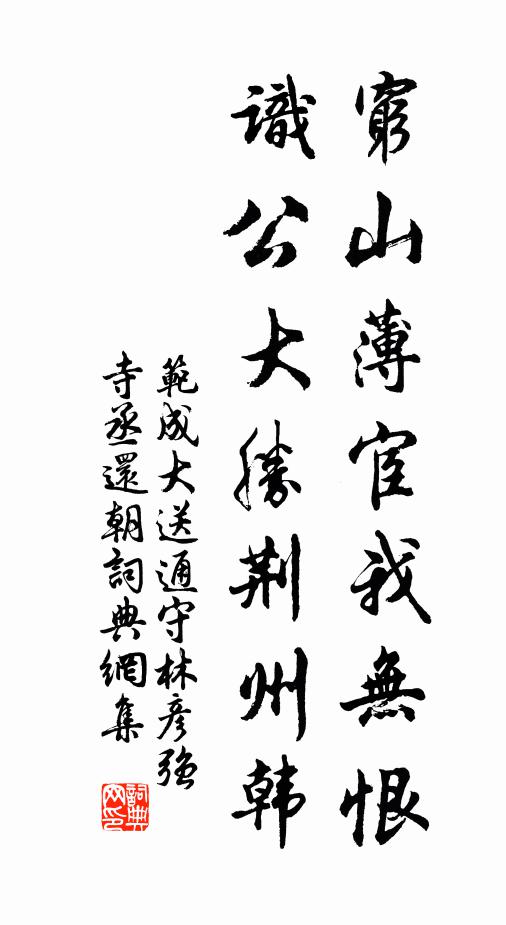 窮山薄宦我無恨
識公大勝荆州韩
範成大送通守林彦强
寺丞還朝詞典網集
詞典网印